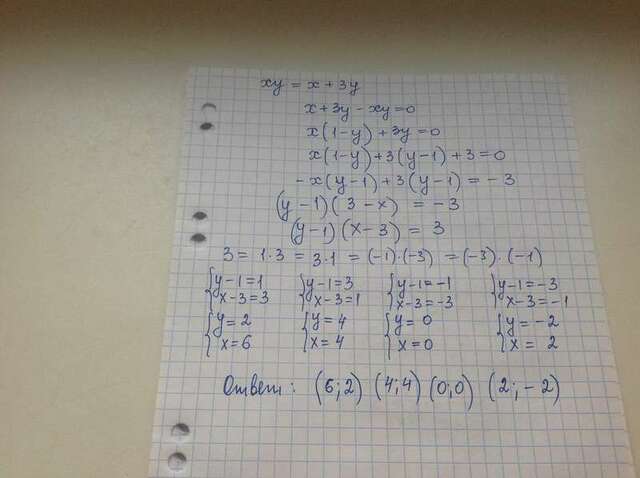 xy = x + 3y
x + 3y - xy = 0
x(1-y) + 3y = 0
x(1-y) + 3(y-1) + 3 = 0
- x(y-1) + 3(y-1) = - 3
(y - 1)(3 - x) = - 3
(y-1)(x-3) = 3
3 = 1·3 = 3·1 = (-1)·(-3) = (-3)·(-1)
{y-1=1 {y-1=3 {y-1=-1 {y-1=-3
x-3=3 x-3=1 x-3=-3 x-3=-1
{y=2 {y=4 {y=0 {y=-2
x=6 x=4 x=0 x=2
Ответ: (6;2) (4;4) (0;0) (2;-2)